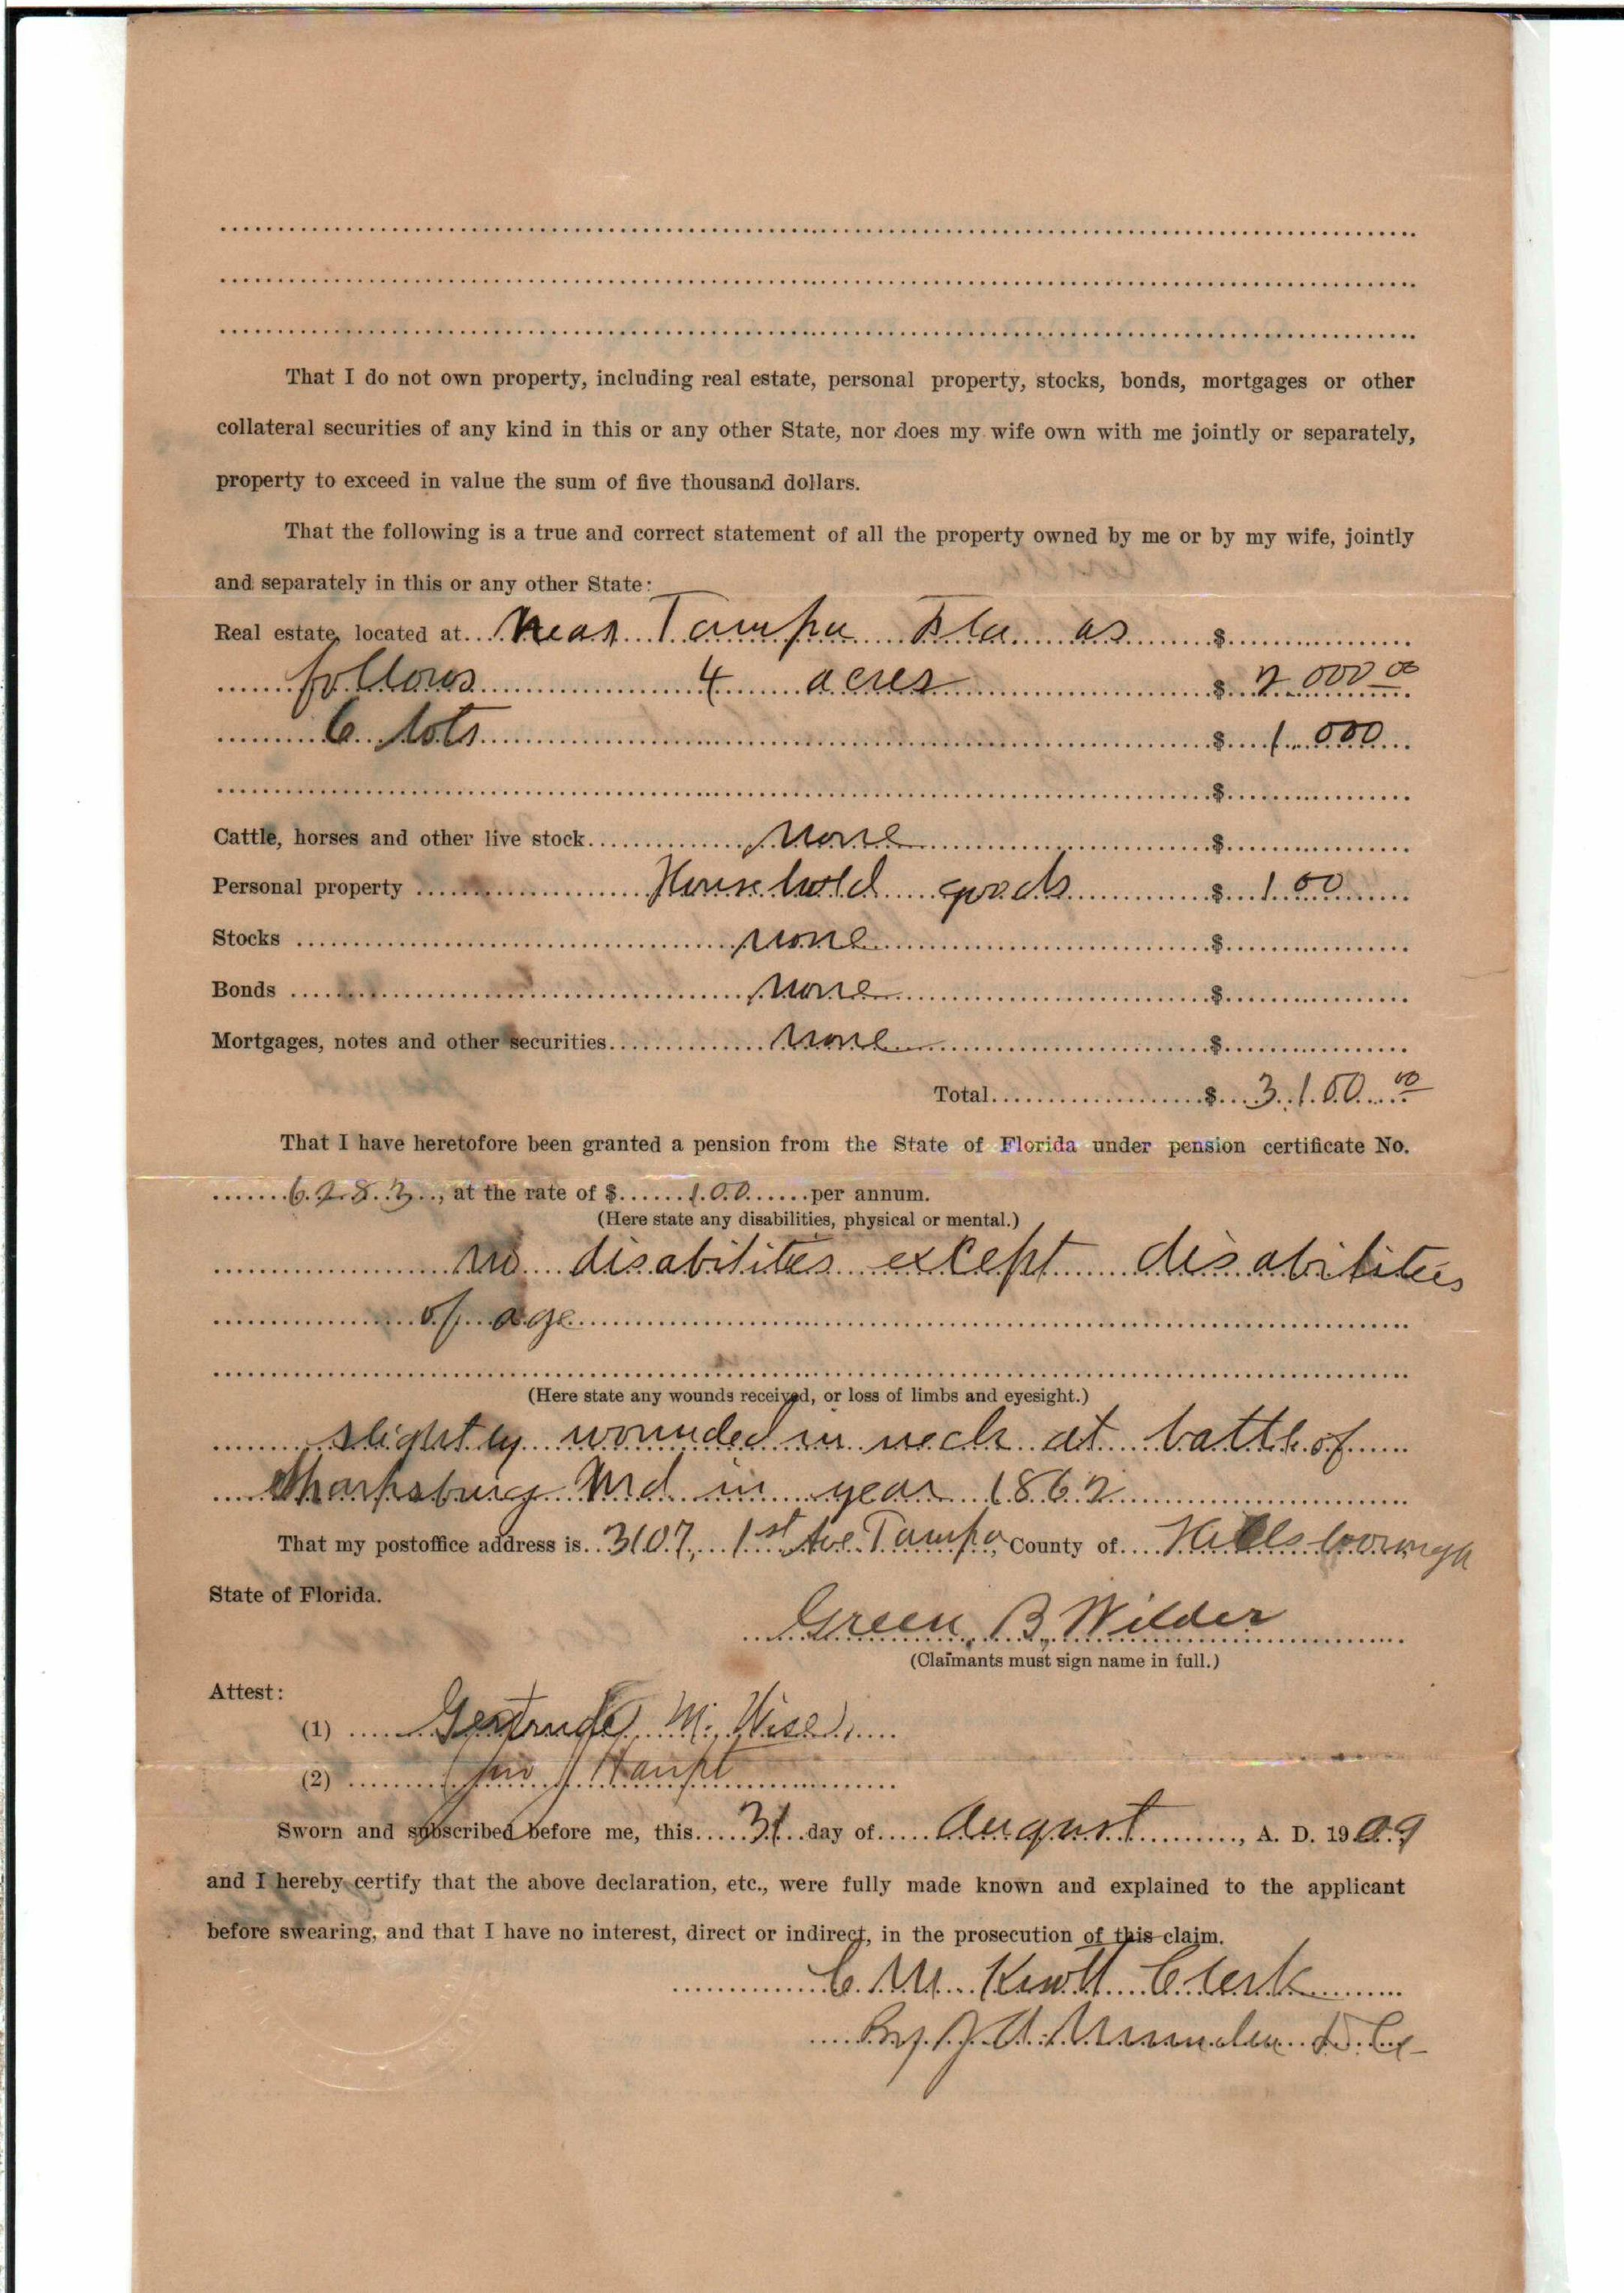 That I do not own property, including real estate, personal property, stocks, bonds, mortgages or other
collateral securities of any kind in this or any other State, nor does my wife own with me jointly or separately,
property to exceed in value the sum of five thousand dollars.
That the following is a true and correct statement of all the property owned by me or by my wife, jointly
and separately in this or any other State:
Real estate, located at near Tampa Fla as $
follows 4 acres $ 2 000 00
6 lots $ 1 000
$
Cattle, horses and other live stock none $
Personal property Household goods $ 1 00
Stocks none $
Bonds none $
Mortgages, notes and other securities none $
Total $ 3 100 00
That I have heretofore been granted a pension from the State of Florida under pension certificate No.
6283, at the rate of $ 100 per annum.
(Here state any disabilities, physical or mental.)
no disabilities except disabilities
of age
(Here state any wounds received, or loss of limbs and eyesight.)
slightly wounded in neck at battle of
Sharpsburg Md in year 1862
That my postoffice address is 3107, 1st Ave Tampa, County of Hillsborough
State of Florida.
Green B Wilder
(Claimants must sign name in full.)
Attest:
(1) Gertrude M. Wise
(2) Jno J Haupt
Sworn and subscribed before me, this 31 day of August, A. D. 1909
and I hereby certify that the above declaration, etc., were fully made known and explained to the applicant
before swearing, and that I have no interest, direct or indirect, in the prosecution of this claim.
C. M. Knott Clerk
By D.C.